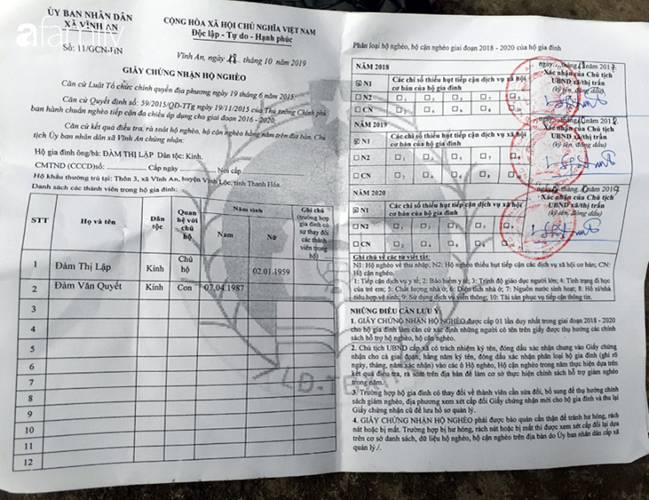 afamily
ỦY BAN NHÂN DÂN
XÃ VĨNH AN
Số: 11/GCN-HN
CỘNG HÒA XÃ HỘI CHỦ NGHĨA VIỆT NAM
Độc lập - Tự do - Hạnh phúc
Vĩnh An, ngày 18 tháng 10 năm 2019
GIẤY CHỨNG NHẬN HỘ NGHÈO
Căn cứ Luật Tổ chức chính quyền địa phương ngày 19 tháng 6 năm 2015;
Căn cứ Quyết định số: 59/2015/QĐ-TTg ngày 19/11/2015 của Thủ tướng Chính phủ
ban hành chuẩn nghèo tiếp cận đa chiều áp dụng cho giai đoạn 2016 - 2020.
Căn cứ kết quả điều tra, rà soát hộ nghèo, hộ cận nghèo hằng năm trên địa bàn. Chủ
tịch Ủy ban nhân dân xã Vĩnh An chứng nhận:
Hộ gia đình ông/bà: ĐÀM THỊ LẬP Dân tộc: Kinh.
CMTND (CCCD) số: Cấp ngày Nơi cấp
Hộ khẩu thường trú tại: Thôn 3, xã Vĩnh An, huyện Vĩnh Lộc, tỉnh Thanh Hóa.
Danh sách các thành viên trong hộ gia đình:
STT Họ và tên Dân tộc Quan hệ với chủ hộ Năm sinh Nam Nữ Ghi chú (trường hợp gia đình có sự thay đổi các thành viên trong hộ)
1 Đàm Thị Lập Kinh Chủ hộ 02.01.1959
2 Đàm Văn Quyết Kinh Con 07.04.1987
3
4
5
6
7
8
9
10
11
12
LĐ-TB
Phân loại hộ nghèo, hộ cận nghèo giai đoạn 2018 - 2020 của hộ gia đình
NĂM 2018
N1
N2
CN
Các chỉ số thiếu hụt tiếp cận dịch vụ xã hội
cơ bản của hộ gia đình
Xác nhận của Chủ tịch
UBND xã/thị trấn
(ký tên, đóng dấu)
NĂM 2019
N1
N2
CN
Các chỉ số thiếu hụt tiếp cận dịch vụ xã hội
cơ bản của hộ gia đình
Xác nhận của Chủ tịch
UBND xã/thị trấn
(ký tên, đóng dấu)
NĂM 2020
N1
N2
CN
Các chỉ số thiếu hụt tiếp cận dịch vụ xã hội
cơ bản của hộ gia đình
Xác nhận của Chủ tịch
UBND xã/thị trấn
(ký tên, đóng dấu)
Ghi chú về các từ viết tắt:
N1: Hộ nghèo về thu nhập; N2: Hộ nghèo thiếu hụt tiếp cận các dịch vụ xã hội cơ bản; CN:
Hộ cận nghèo.
1: Tiếp cận dịch vụ y tế; 2: Bảo hiểm y tế; 3: Trình độ giáo dục người lớn; 4: Tình trạng đi học
của trẻ em; 5: Chất lượng nhà ở; 6: Diện tích nhà ở; 7: Nguồn nước sinh hoạt; 8: Hố xí/nhà
tiêu hợp vệ sinh; 9: Sử dụng dịch vụ viễn thông; 10: Tài sản phục vụ tiếp cận thông tin.
NHỮNG ĐIỀU CẦN LƯU Ý
1. GIẤY CHỨNG NHẬN HỘ NGHÈO được cấp 01 lần duy nhất trong giai đoạn 2018 - 2020
cho hộ gia đình làm căn cứ xác định những người có tên trên giấy được thụ hưởng các chính
sách hỗ trợ hộ nghèo, hộ cận nghèo.
2. Chủ tịch UBND cấp xã có trách nhiệm ký tên, đóng dấu xác nhận chung vào Giấy chứng
nhận cho cả giai đoạn; hằng năm ký tên, đóng dấu xác nhận phân loại hộ gia đình (ghi rõ
ngày, tháng, năm xác nhận) vào các ô Hộ nghèo, Hộ cận nghèo trong năm thực hiện dựa trên
kết quả điều tra, rà soát trên địa bàn để làm cơ sở thực hiện chính sách hỗ trợ giảm nghèo
trong năm.
3. Trường hợp hộ gia đình có thay đổi về thành viên cần sửa đổi, bổ sung để thụ hưởng chính
sách giảm nghèo, địa phương xem xét cấp đổi Giấy chứng nhận mới cho hộ gia đình và thu lại
Giấy chứng nhận cũ để lưu hồ sơ quản lý.
4. GIẤY CHỨNG NHẬN HỘ NGHÈO phải được bảo quản cẩn thận để tránh hư hỏng, rách
nát hoặc bị mất. Trường hợp bị hư hỏng, rách nát hoặc bị mất thì được xem xét cấp đổi lại dựa
trên cơ sở danh sách, dữ liệu hộ nghèo, hộ cận nghèo trên địa bàn do Ủy ban nhân dân cấp xã
quản lý./.